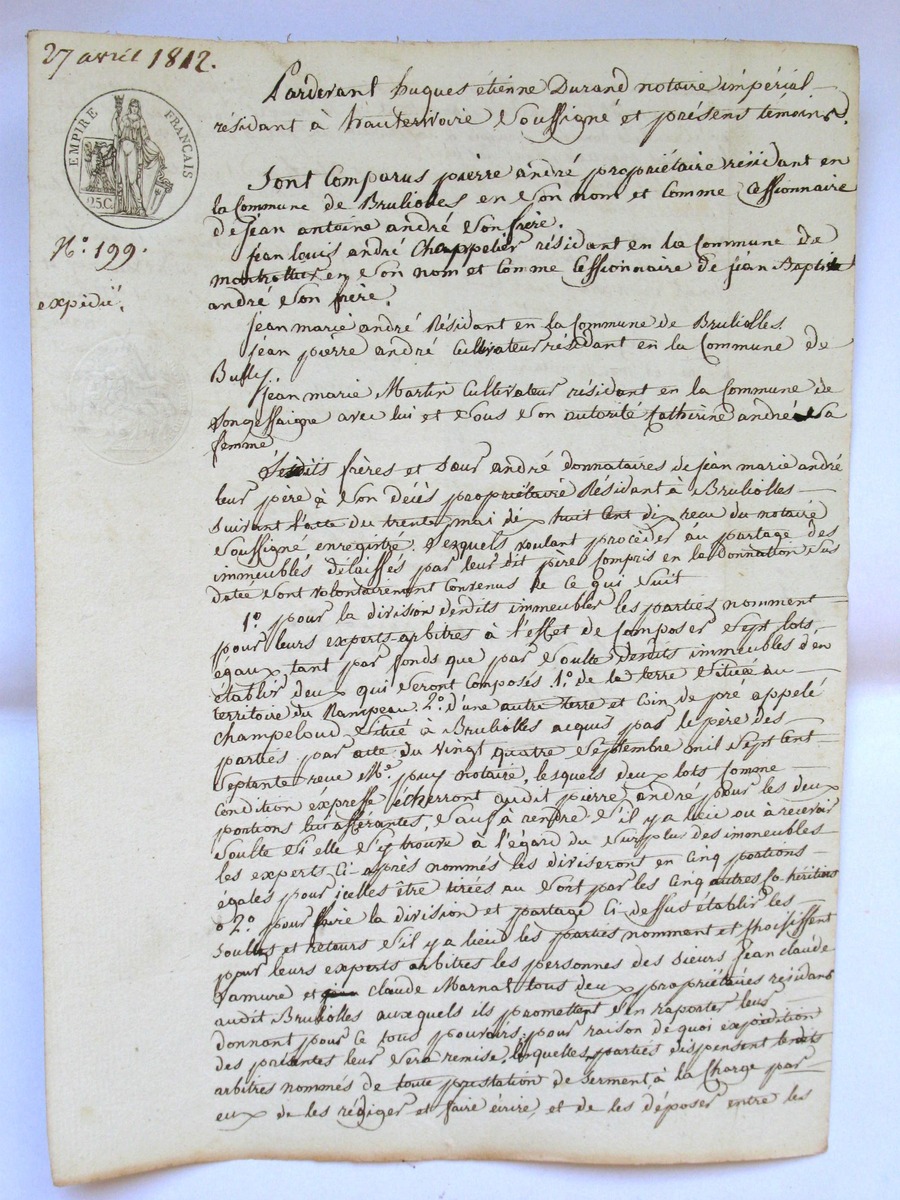 27 avril 1812.
EMPIRE FRANÇAIS
25 C.
N.° 199.
expédié.
Pardevant hugues étienne Durand notaire impérial
résidant à hauterivoire soussigné et présens temoins.
Sont Comparus pierre andré propriétaire résidant en
la Commune de Brulioles en son nom et comme Cessionnaire
de jean antoine andré son frère.
jean louis andré Chappelier résidant en la Commune de
montrottier en son nom et Comme Cessionnaire de jean Baptiste
andré son frère.
jean marie andré Résidant en la Commune de Brulioles
jean pierre andré Cultivateur résidant en la Commune de
Bully.
jean marie Martin Cultivateur résidant en la Commune de
Longessaigne avec lui et sous son autorité Catherine andré sa
femme
Lesdits frères et sœur andré donnataires de jean marie andré
leur père à son décès propriétaire Résidant à Brulioles
Suivant l'acte du trente mai dix huit cent dix recu du notaire
soussigné, enregistré. Lesquels voulant procéder au partage des
immeubles délaissés par leur dit père Compris en la Donnation sus
datée sont volontairement Convenus de Ce qui suit
1.° pour la division desdits immeubles les parties nomment
pour leurs experts-arbitres à l'effet de Composer sept lots
égaux tant par fonds que par soulte desdits immeubles d'en
établir deux qui seront Composés 1.° de la terre située au
territoire du Rampeau. 2.° d'une autre terre et Coin de pré appelé
champeloud située à Brulioles acquis par le père des
parties par acte du vingt quatre septembre mil sept cent
septante recu M.e puy notaire, lesquels deux lots Comme
Condition expresse écherront audit pierre andré pour les deux
portions lui afférantes, sauf à rendre s'il y a lieu ou à recevoir
soulte si elle s'y trouve à l'égard du surplus des immeubles
les experts Ci-après nommés les diviseront en Cinq portions
égales pour icelles être tirées au sort par les Cinq autres Co-héritiers
2.° pour faire la division et partage Ci-dessus établir les
soultes et retours s'il y a lieu les parties nomment et choisissent
pour leurs experts arbitres les personnes des sieurs Jean claude
Lamure et claude Marnat tous deux propriétaires résidans
audit Brulioles auxquels ils promettent s'en raporter leur
donnont pour Ce tous pouvoirs; pour raison de quoi expédition
des présentes leur sera remise, lesquelles parties dispensent lesdits
arbitres nommés de toute prestation de serment, à la Charge par
eux de les rédiger et faire écrire, et de les déposer entre les